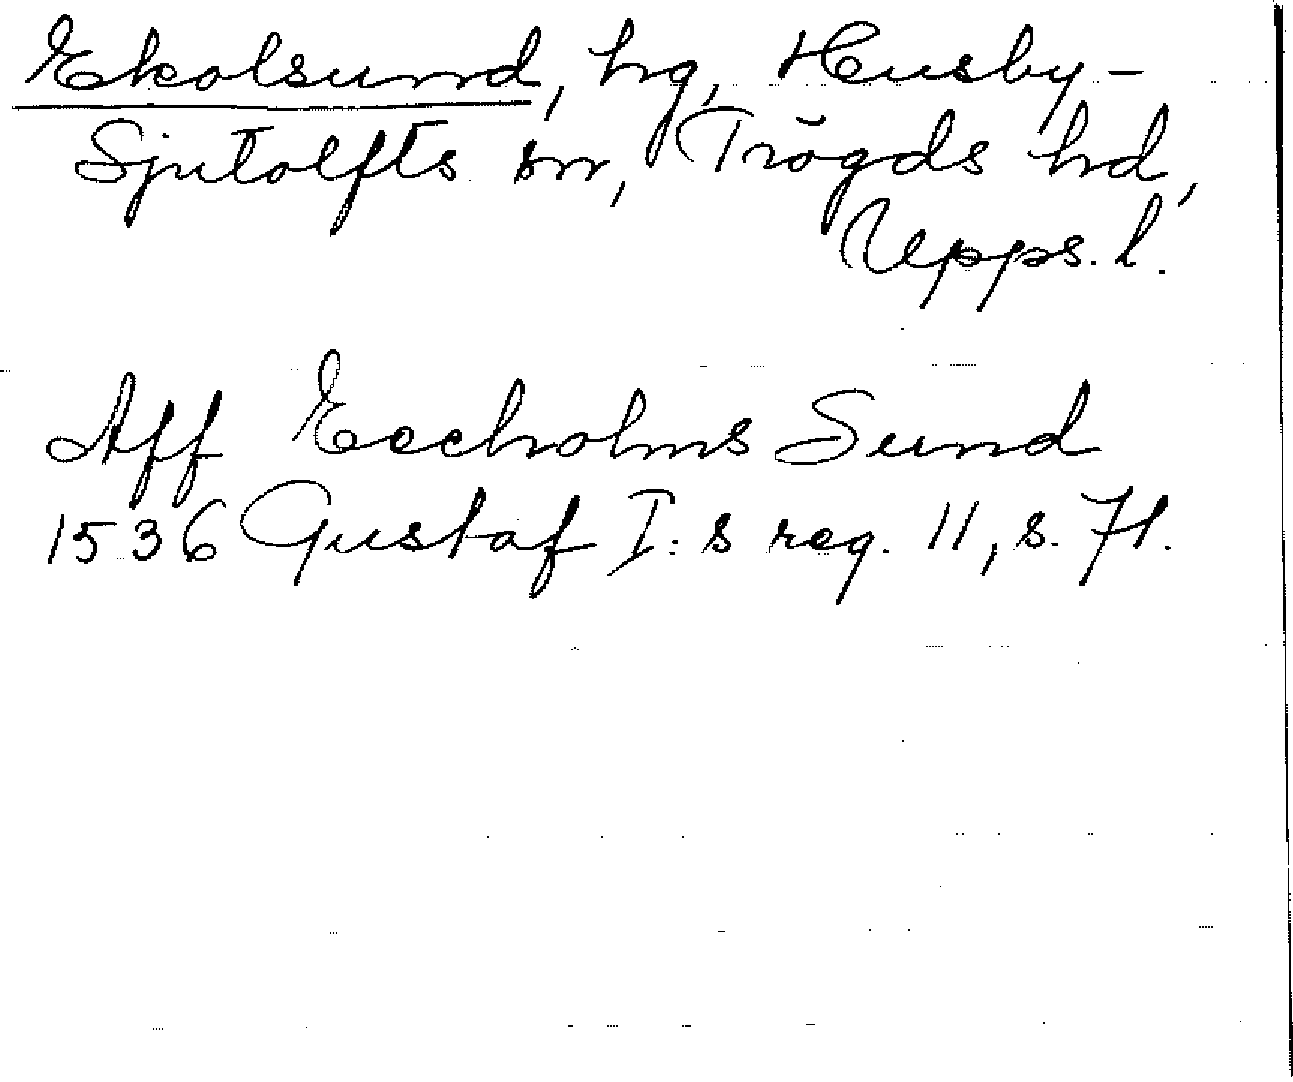 Ekolsund, hg, Husby-
Sjutolfts sn, Trögds hd,
Upps. l.
Aff Eccholms Sund
1536 Gustaf I:s reg. 11, s. 71.